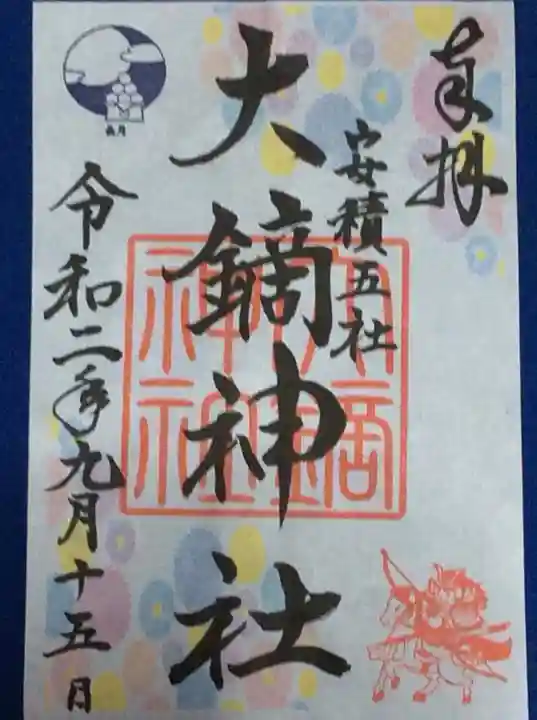 奉拝
安積五社
大鏑神社
大鏑
神社
令和二年九月十五日